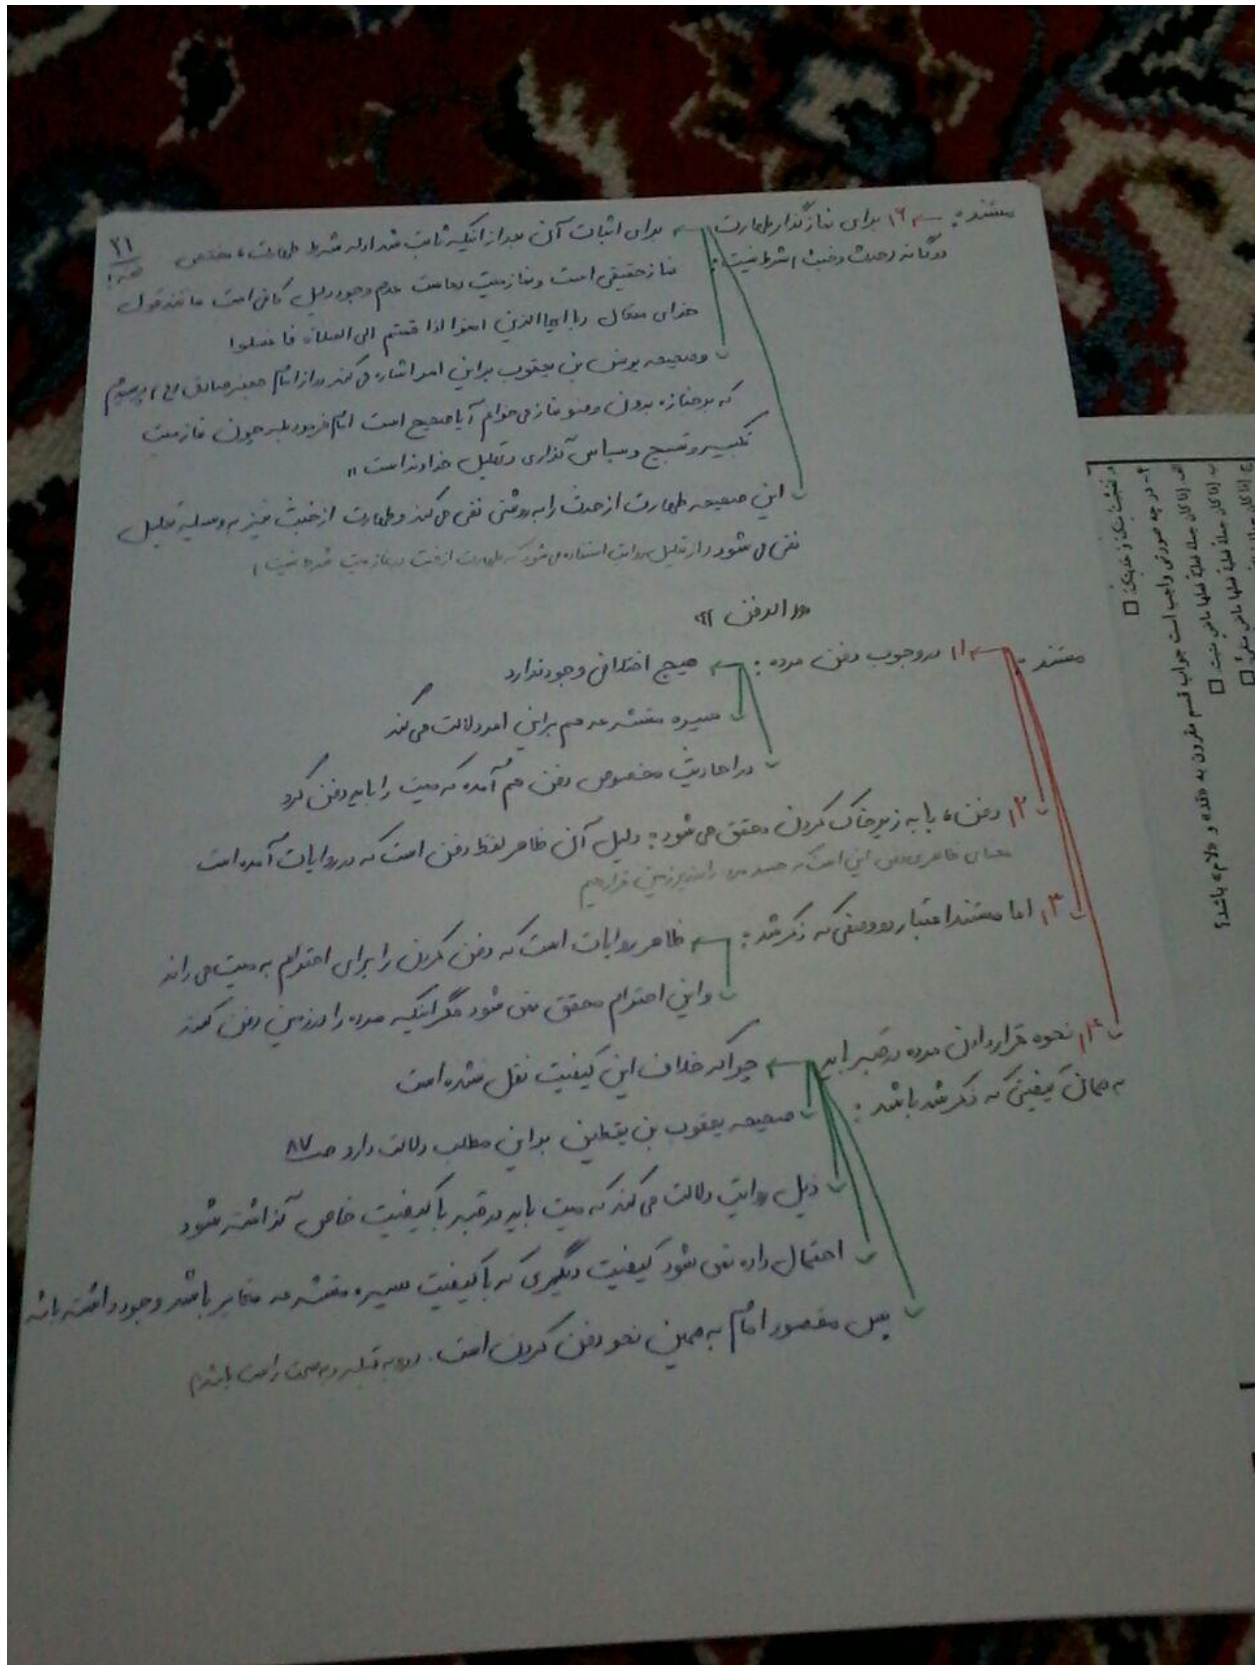 مستند: ۶) برای نمازگذار طهارت دوگانه (حدث و خبث) شرط نیست:
برای اثبات آن بعد از آنکه ثابت شد ادله شرط طهارت، مختص ۲۱
نماز حقیقی است و نماز میت دعاست عدم وجود دلیل کافی است مانند قول
خدای متعال (یا ایها الذین امنوا اذا قمتم الی الصلاة فاغسلوا
وصحیحه یونس بن یعقوب بر این امر اشاره می کند (از امام جعفر صادق (ع) پرسیدم
که بر جنازه بدون وضو نماز می خوانم آیا صحیح است امام فرمود بله چون نماز میت
تکبیر و تسبیح و سپاس گذاری و تهلیل خداوند است"
این صحیحه طهارت از حدث را به روشنی نفی می کند و طهارت از خبث نیز به وسیله تعلیل
نفی می شود (از تعلیل روایت استفاده می شود که طهارت از خبث در نماز میت شرط نیست)
«الدفن»
مستند: ۱) در وجوب دفن مرده: هیچ اختلافی وجود ندارد
سیره متشرعه هم بر این امر دلالت می کند
در احادیث مخصوص دفن هم آمده که میت را باید دفن کرد
۲) دفن، با به زیر خاک کردن محقق می شود: دلیل آن ظاهر لفظ دفن است که در روایات آمده است
معنای ظاهری دفن این است که جسد مرده را در زیر زمین قرار دهیم
۳) اما مستند اعتبار دو وصفی که ذکر شد: ظاهر روایات است که دفن کردن را برای احترام به میت می داند
و این احترام محقق نمی شود مگر اینکه مرده را در زمین دفن کنند
۴) نحوه قرار دادن مرده در قبر باید به همان کیفیتی که ذکر شد باشد:
چرا که خلاف این کیفیت نقل نشده است
صحیحه یعقوب بن یقطین بر این مطلب دلالت دارد ص ۸۷
ذیل روایت دلالت می کند که میت باید در قبر با کیفیت خاص گذاشته شود
احتمال داده نمی شود کیفیت دیگری که با کیفیت سیره متشرعه مغایر باشد وجود داشته باشد
پس مقصود امام به همین نحو دفن کردن است. (رو به قبله و به سمت راست باشد)
۲- در چه صورتی واجب است جواب قسم مقرون به «قد» و «لام» باشد؟
الف) اذا کان جملة فعلیة فعلها ماض
ب) اذا کان جملة فعلیة فعلها ماض مثبت